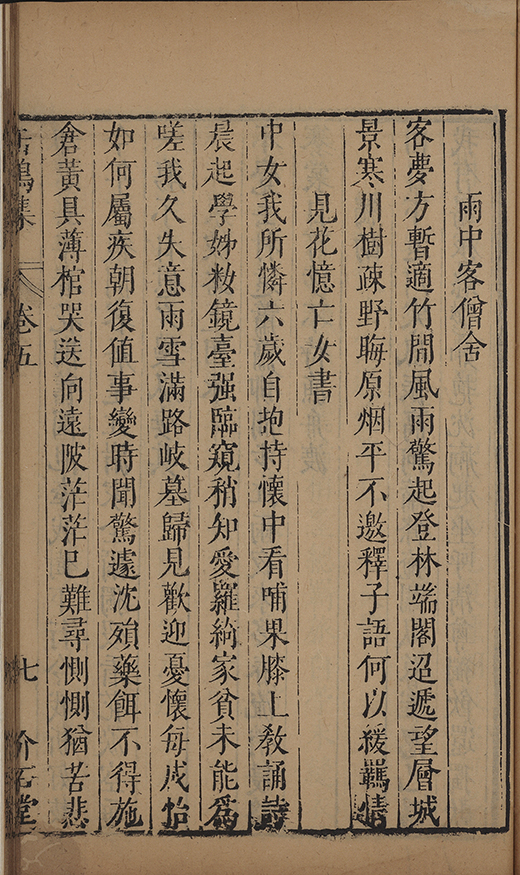 雨中客僧舍
客夢方暫適竹間風雨驚起登林端閣迢遞望層城
景寒川樹疎野晦原烟平不邀釋子語何以緩羈情
見花憶亡女書
中女我所憐六歲自抱持懷中看哺果膝上教誦詩
晨起學姊粧鏡臺强臨窺稍知愛羅綺家貧未能爲
嗟我久失意雨雪滿路岐墓歸見歡迎憂懷每成怡
如何屬疾朝復值事變時聞驚遽沈殞藥餌不得施
倉黃具薄棺哭送向遠陂茫茫巳難尋惻惻猶苦悲
卷五
七